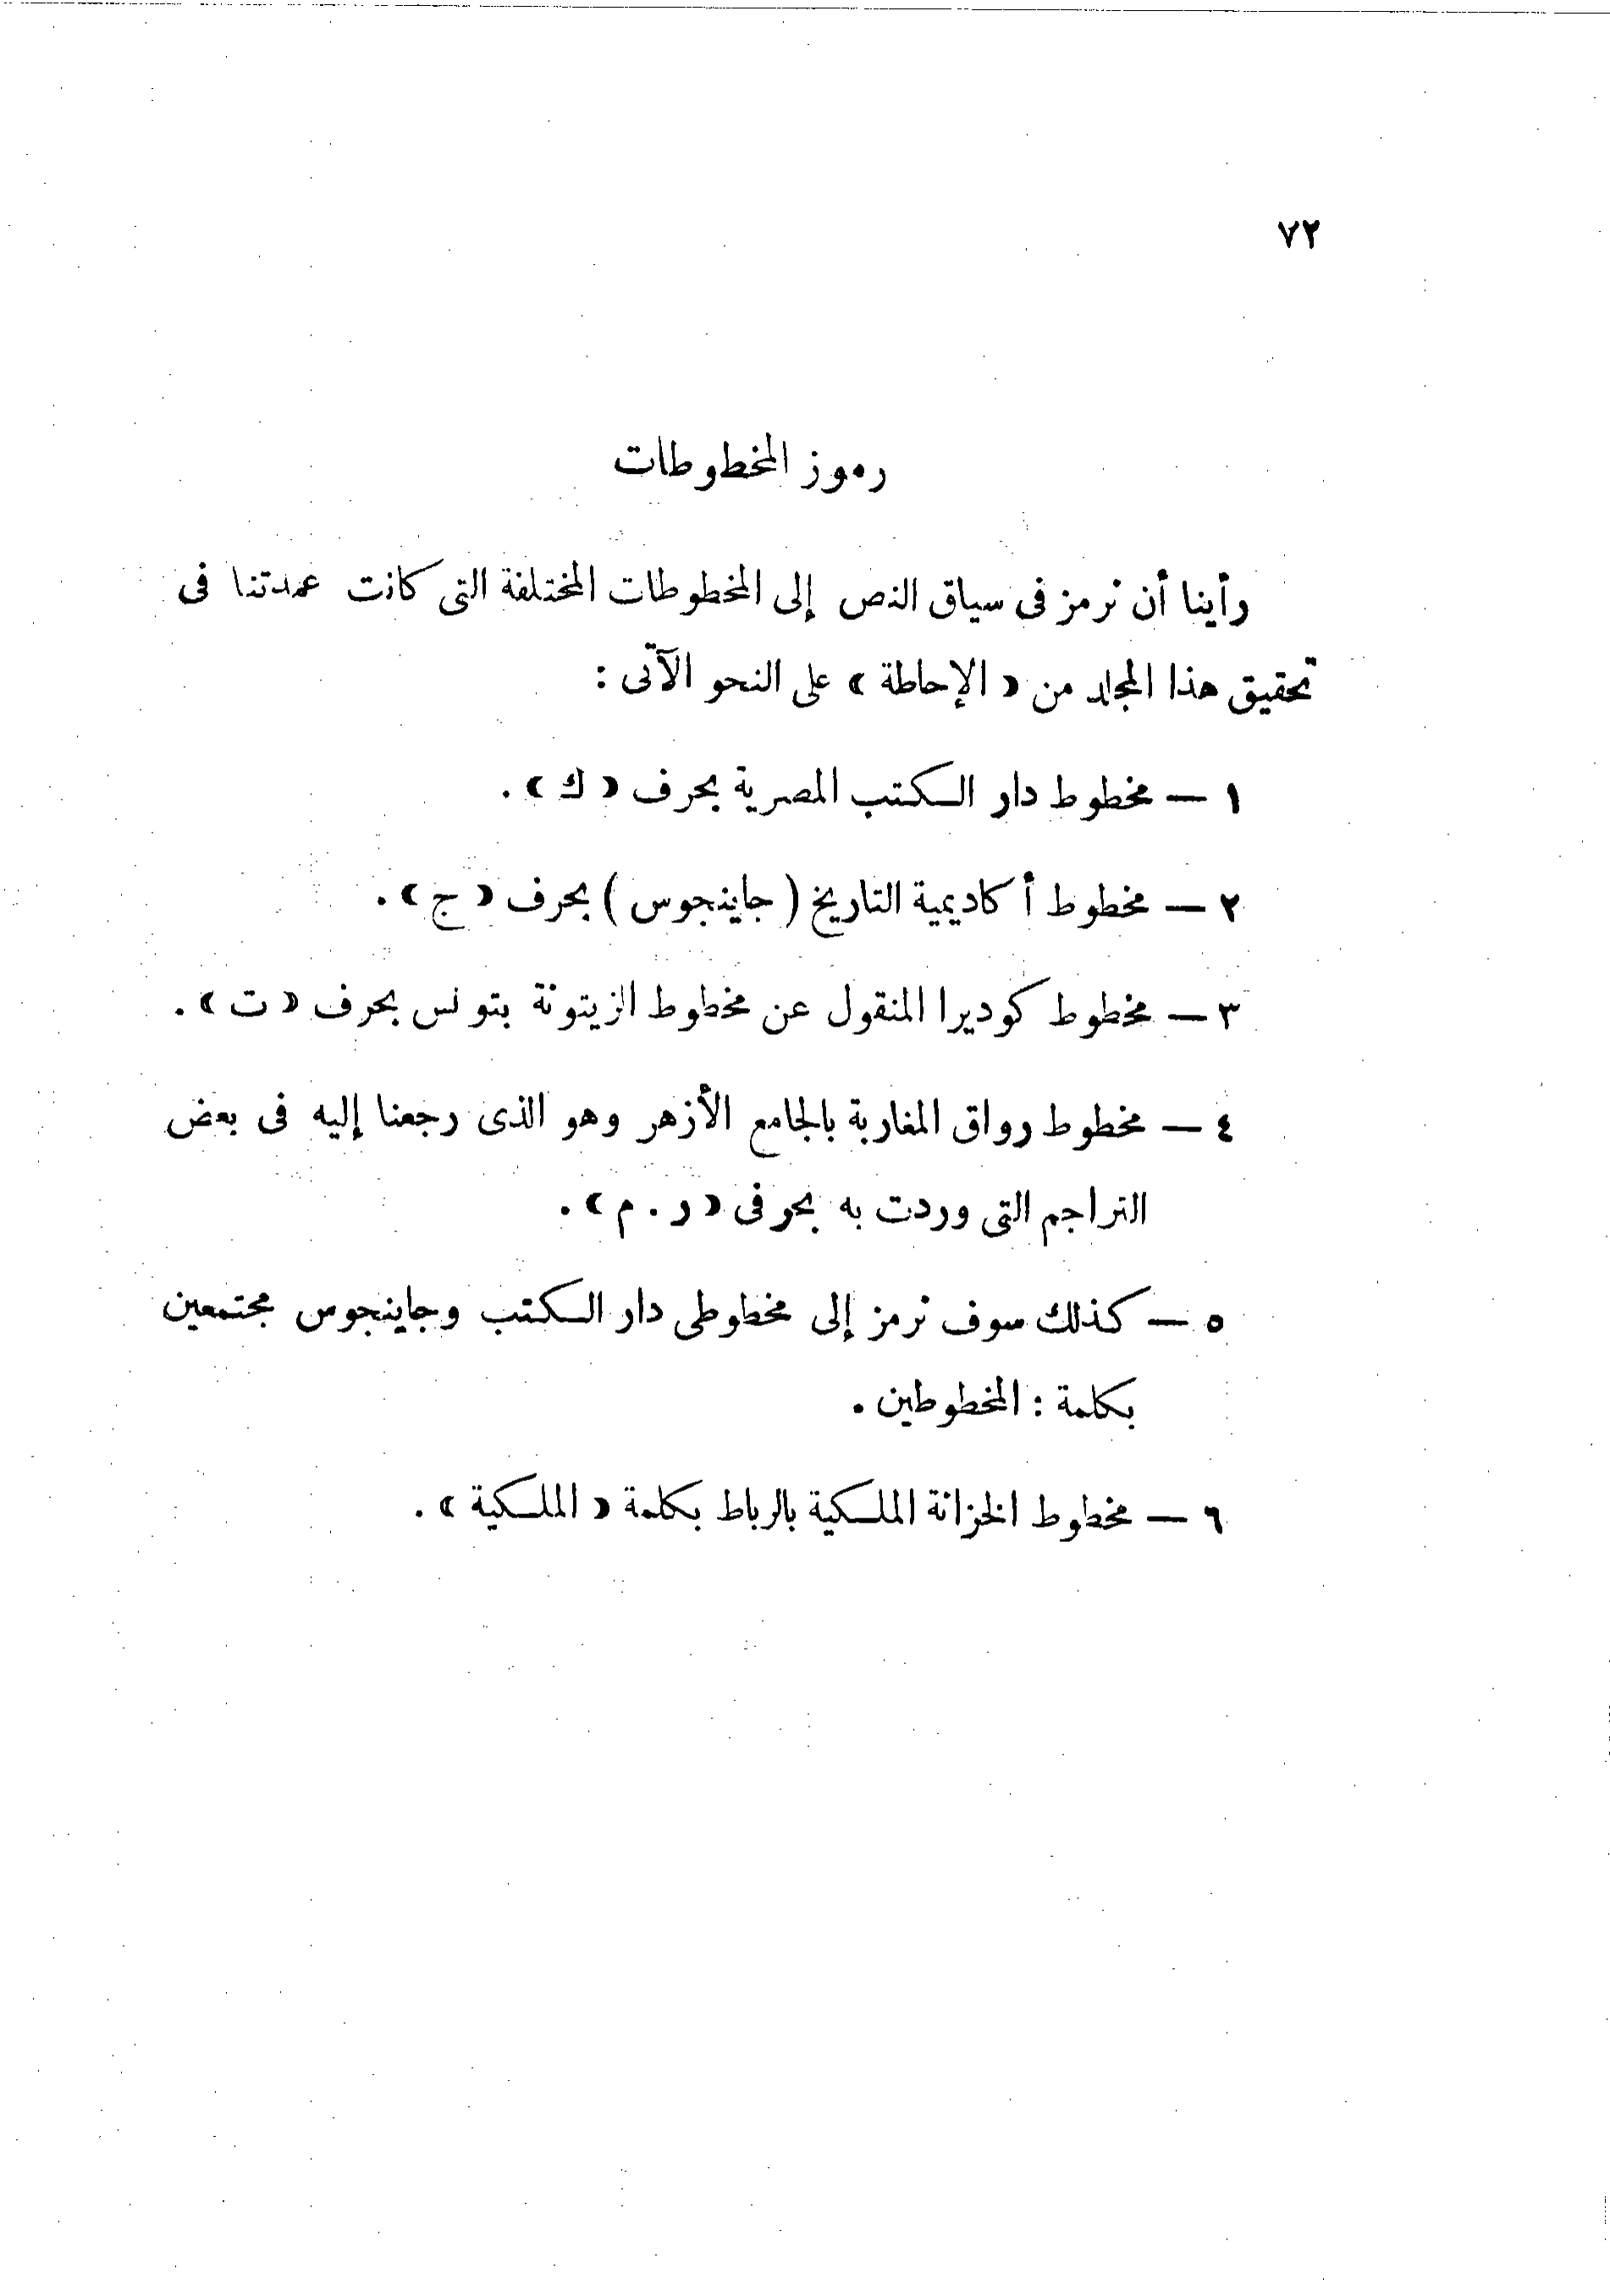 ٧٢
رموز المخطوطات
رأينا أن نرمز فى سياق النص إلى المخطوطات المختلفة التى كانت عمدتنا فى
تحقيق هذا المجلد من « الإحاطة » على النحو الآتى :
١ — مخطوط دار الكتب المصرية بحرف « ك » .
٢ — مخطوط أكاديمية التاريخ ( جاينجوس ) بحرف « ج » .
٣ — مخطوط كوديرا المنقول عن مخطوط الزيتونة بتونس بحرف « ت » .
٤ — مخطوط رواق المغاربة بالجامع الأزهر وهو الذى رجعنا إليه فى بعض
التراجم التى وردت به بحرفى « ر . م » .
٥ — كذلك سوف نرمز إلى مخطوطى دار الكتب وجاينجوس مجتمعين
بكلمة : المخطوطين .
٦ — مخطوط الخزانة الملكية بالرباط بكلمة « الملكية » .